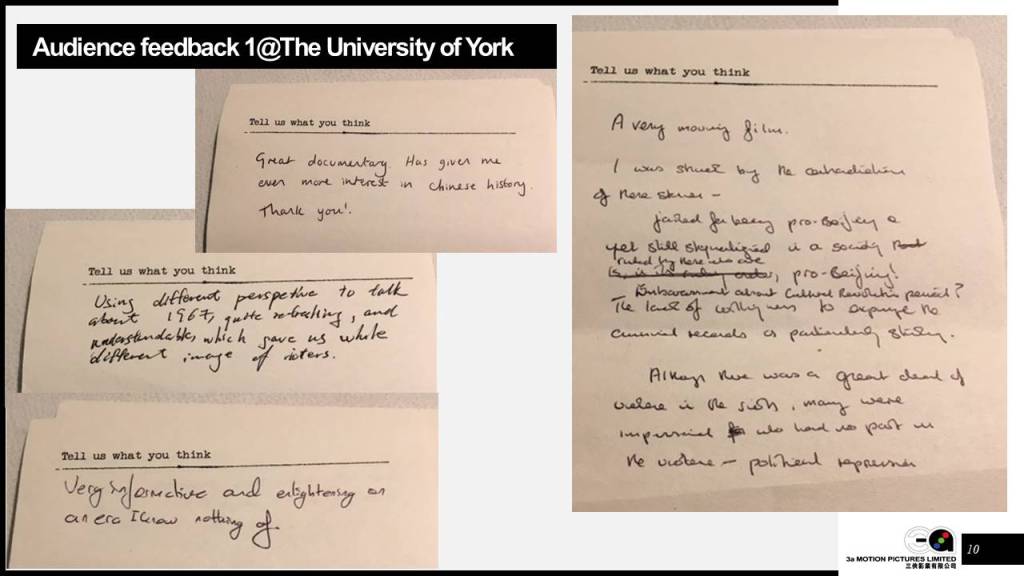 Audience feedback 1@The University of York
Tell us what you think
Great documentary. Has given me
even more interest in Chinese history.
Thank you!
Tell us what you think
Using different perspetive to talk
about 1967, quite refreshing, and
understandable, which gave us whole
different image of rioters.
Tell us what you think
Very informative and enlightening on
an era I know nothing of.
Tell us what you think
A very moving film.
I was struck by the contradiction
of these
jailed for being pro-Beijing &
yet still stigmatized in a society
ruled by those who are
pro-Beijing!
– Embarrassment about Cultural Revolution period?
The lack of willingness to expunge the
criminal records is particularly
Although there was a great deal of
violence in the , many were
imprisoned who had no part in
the violence – political repression
3a MOTION PICTURES LIMITED
三俠影業有限公司
10